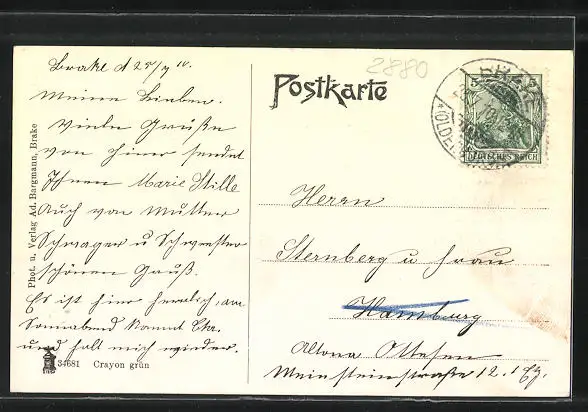 Brake d 25/7 10.
Meine Lieben.
Viele Grüße
von hier sendet
Ihnen Marie Stille
Auch von Mutter
Schwager u Schwester
schönen Gruß.
Es ist hier herrlich, am
Sonnabend kommt Chr.
und holt mich wieder.
Phot. u. Verlag Ad. Bargmann, Brake
34681 Crayon grün
2880
Postkarte
BRAKE
(OLDENB)
5
DEUTSCHES REICH
Herrn
Sternberg u Frau
Hamburg
Altona Ottesen
Meinsteinstraße 12.1 Etg.